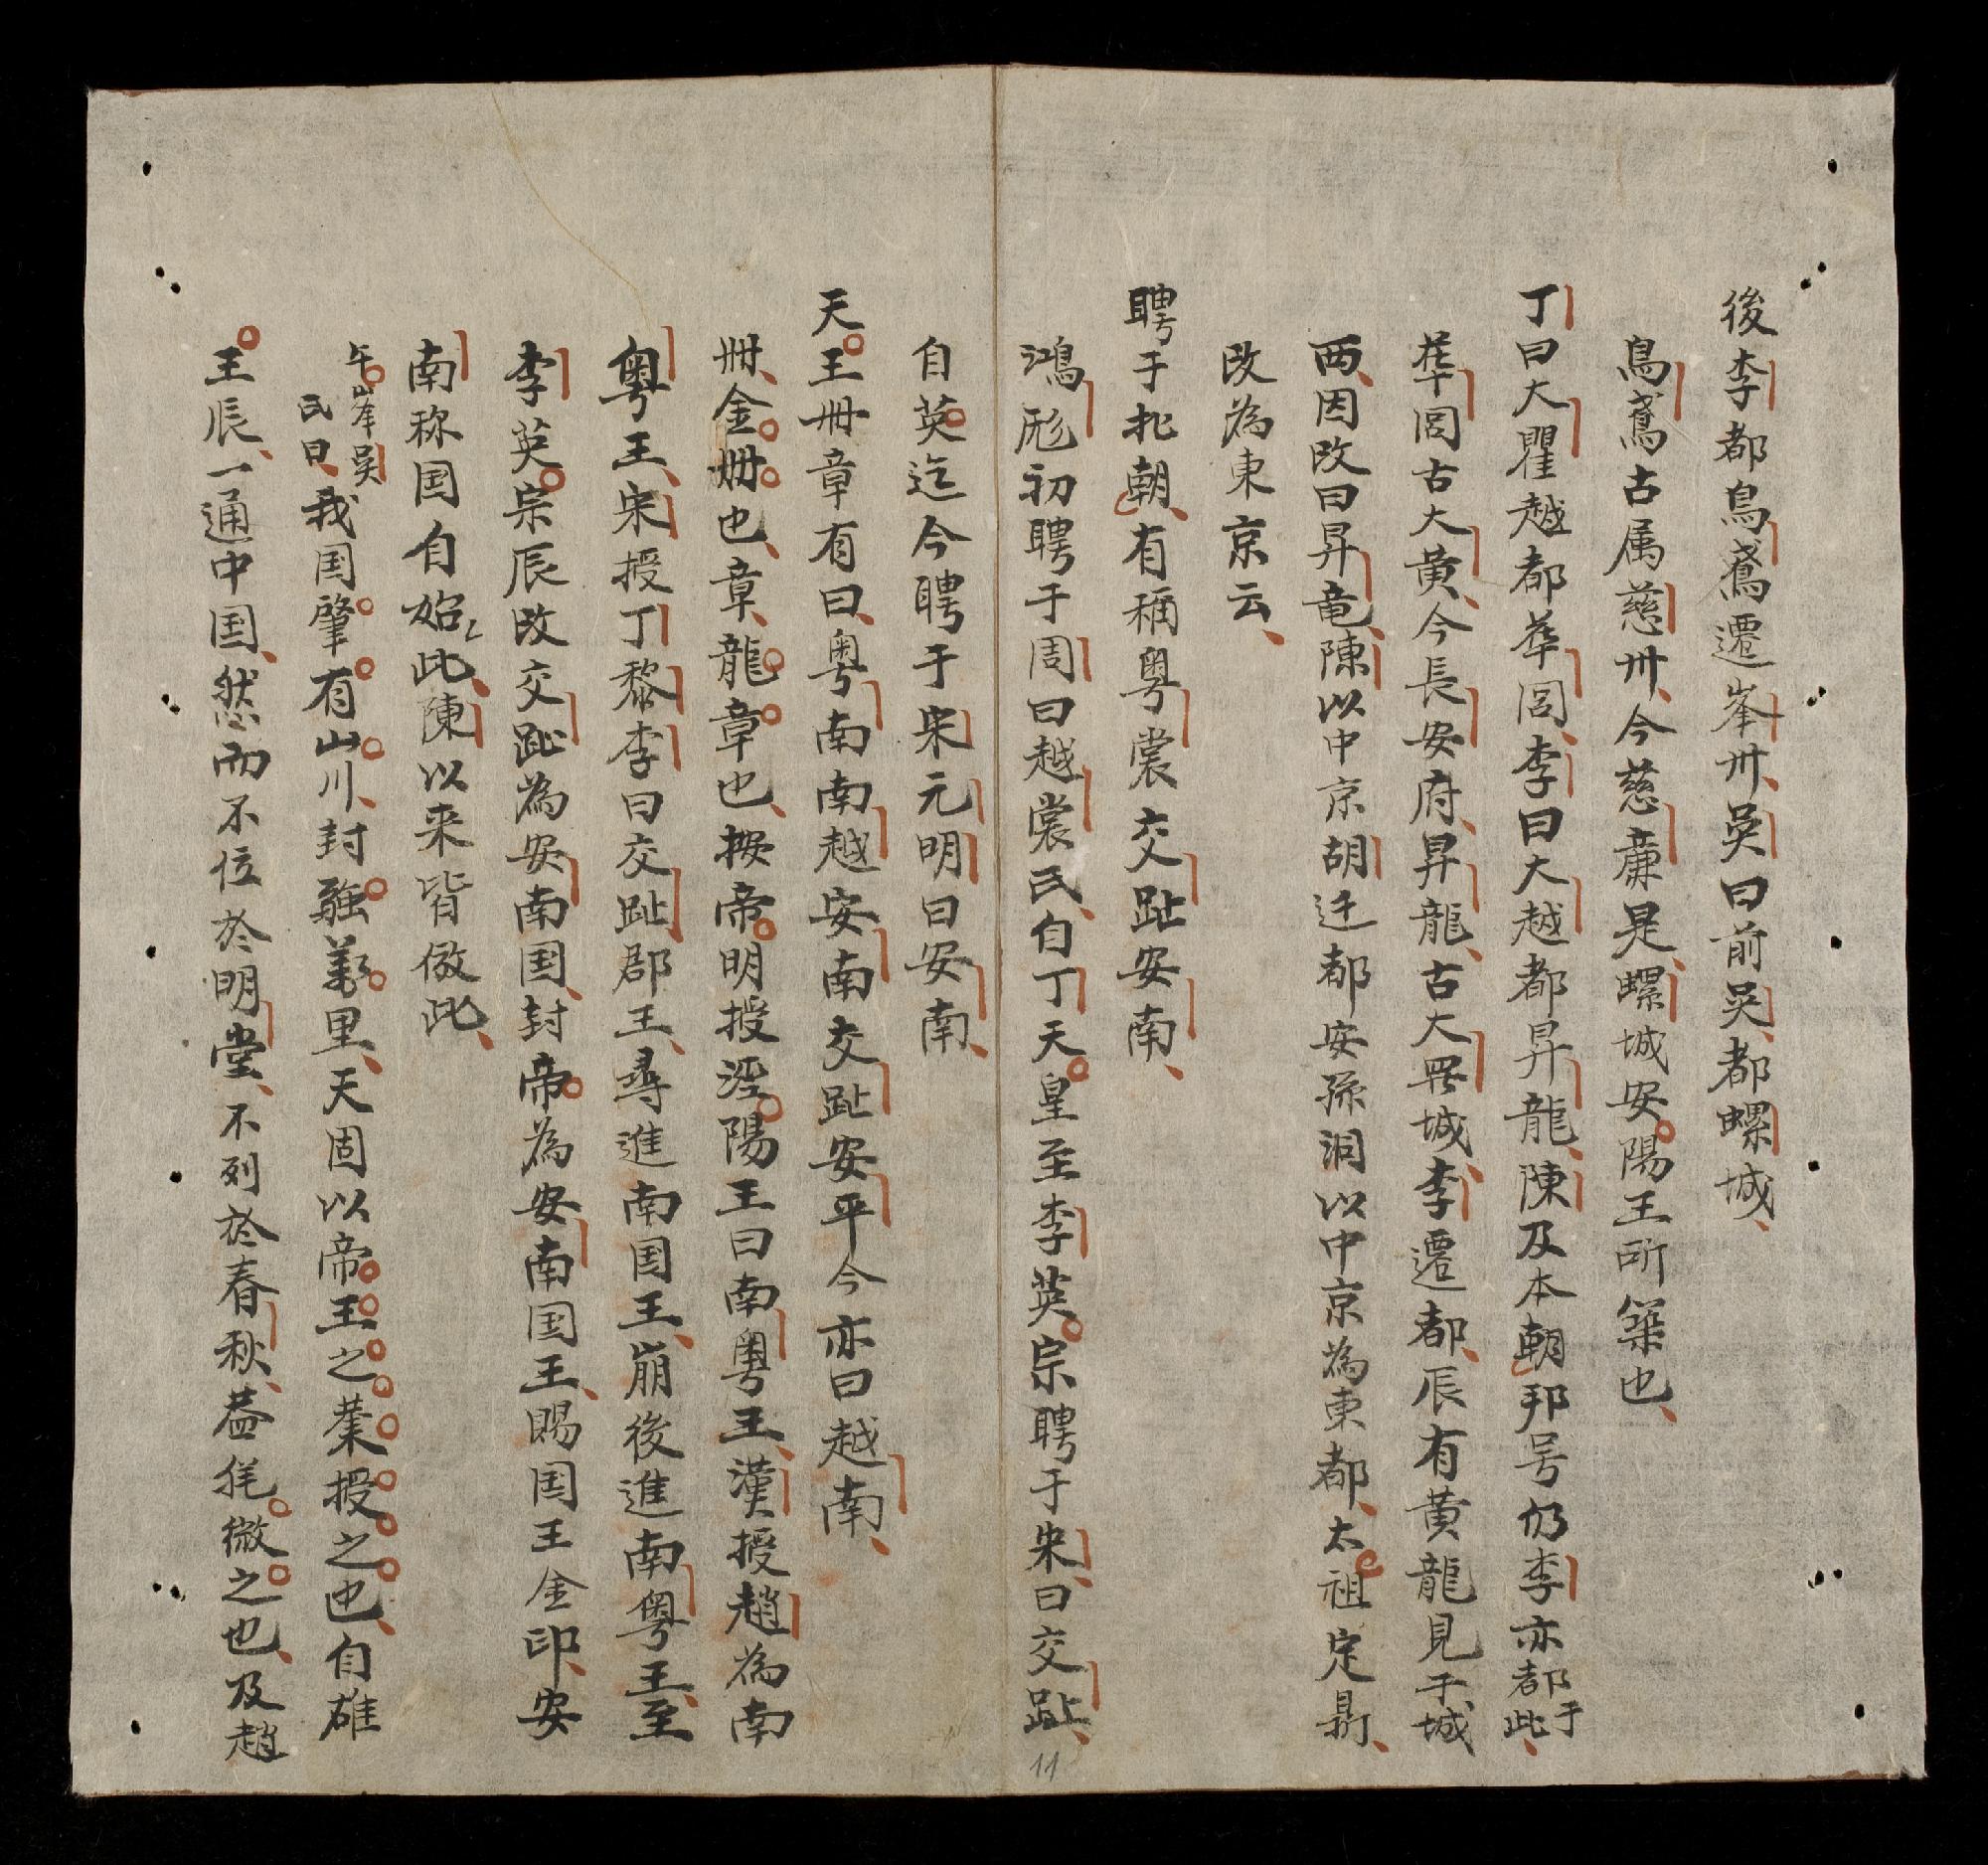 後李都鳥鳶遷峯卅吳曰前吳都螺城
鳥鳶古属慈卅今慈廉是螺城安陽王所築也
丁曰大瞿越都華閭李曰大越都昇龍陳及本朝邦号仍李亦都于此
華閭古大黄今長安府昇龍古大罗城李遷都辰有黄龍見于城
两因改曰昇竜陳以中京胡迁都安孫洞以中京為東都太祖定鼎
改為東京云
聘于北朝有稱粤裳交趾安南
鴻厖初聘于周曰越裳氏自丁天皇至李英宗聘于宋曰交趾
自英迄今聘于宋元明曰安南
天王冊章有曰粤南南越安南交趾安平今亦曰越南
冊金冊也章龍章也按帝明授涇陽王曰南粤王漢授趙為南
粤王宋授丁黎李曰交趾郡王尋進南国王崩後進南粤王至
李英宗辰改交趾為安南国封帝為安南国王賜国王金印安
南称国自始此陳以来皆倣此
午峯吳氏曰我国肇有山川封疆萬里天固以帝王之業授之也自雄
王辰一通中国然而不位於明堂不列於春秋葢微之也及趙